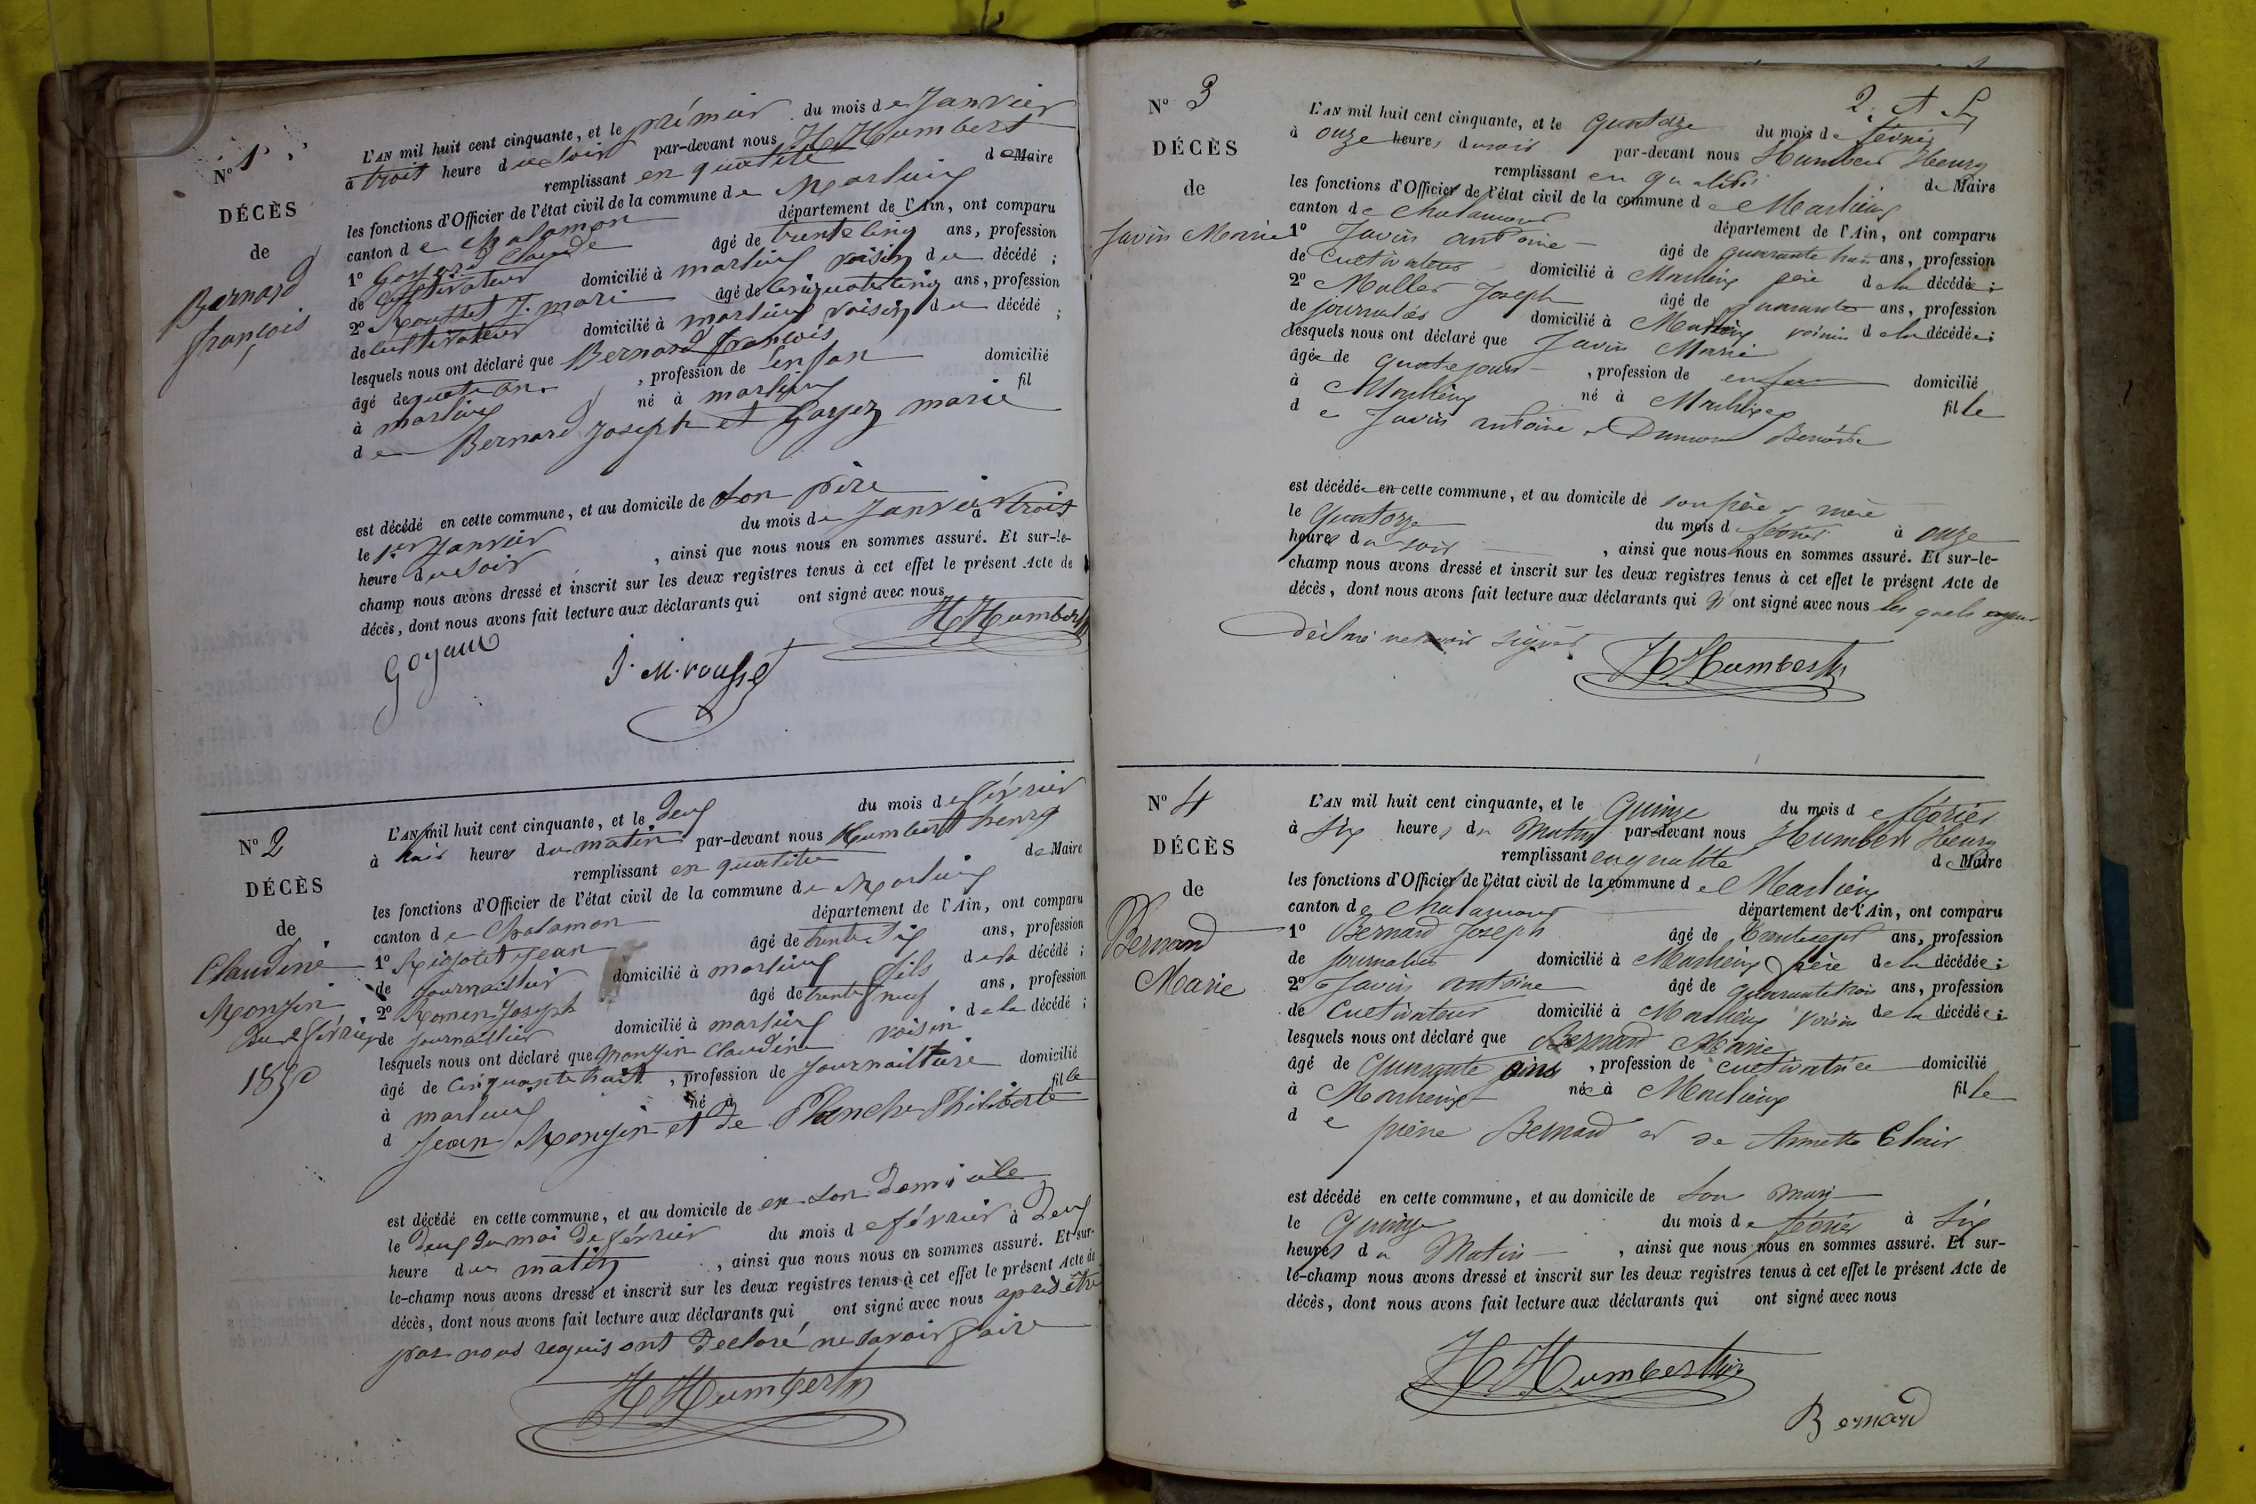 N° 1.
DÉCÈS
de
Bernard
françois
L'AN mil huit cent cinquante, et le prémier du mois de Janvier
à troit heure du soir par-devant nous H Humbert
remplissant en qualité de Maire
les fonctions d'Officier de l'état civil de la commune de Marlieux
canton de Chalamon département de l'Ain, ont comparu
1° Claude âgé de trente cinq ans, profession
de Cultivateur domicilié à marlieux voisin du décédé ;
2° Rousset J. mari âgé de cinquante cinq ans, profession
de cultivateur domicilié à marlieux voisin du décédé ;
lesquels nous ont déclaré que Bernard françois
âgé de quatre an. , profession de enfan domicilié
à marlieux né à marlieux fil
de Bernard Joseph et Goyez marie
est décédé en cette commune, et au domicile de son père
le 1er Janvier du mois de Janvier à trois
heure du soir , ainsi que nous nous en sommes assuré. Et sur-le-
champ nous avons dressé et inscrit sur les deux registres tenus à cet effet le présent Acte de
décès, dont nous avons fait lecture aux déclarants qui ont signé avec nous
H Humbert
J. M. rousset
N° 2
DÉCÈS
de
Claudine
Monjin
Du 2 février
1850
L'AN mil huit cent cinquante, et le deux du mois de février
à huit heures du matin par-devant nous Humbert henry
remplissant en qualité de Maire
les fonctions d'Officier de l'état civil de la commune de Marlieux
canton de Chalamon département de l'Ain, ont comparu
1° Jean âgé de trente six ans, profession
de journaillier domicilié à marlieux fils de la décédé ;
2° Romen Joseph âgé de trente neuf ans, profession
de journaillier domicilié à marlieux voisin de la décédé ;
lesquels nous ont déclaré que Monjin Claudine
âgé de cinquante huit , profession de journaillière domicilié
à marlieux né à fille
d Jean Monjin et de Planche Philiberte
est décédé en cette commune, et au domicile de en son domicile
le deux du moi de février du mois de février à deux
heure du matin , ainsi que nous nous en sommes assuré. Et sur-
le-champ nous avons dressé et inscrit sur les deux registres tenus à cet effet le présent Acte de
décès, dont nous avons fait lecture aux déclarants qui ont signé avec nous après être
par nous requis ont declaré ne savoir faire
H Humbert
2.
N° 3
DÉCÈS
de
Javin Marie
L'AN mil huit cent cinquante, et le quatorze du mois de février
à onze heures du soir par-devant nous Humbert Henry
remplissant en qualité de Maire
les fonctions d'Officier de l'état civil de la commune de Marlieux
canton de Chalamont département de l'Ain, ont comparu
1° Javin antoine âgé de quarante huit ans, profession
de cultivateur domicilié à Marlieux père de la décédée ;
2° Mollet Joseph âgé de quarante ans, profession
de journalier domicilié à Marlieux voisin de la décédée ;
lesquels nous ont déclaré que Javin Marie
âgée de quatre jours , profession de domicilié
à Marlieux né à Marlieux fille
de Javin antoine et Benoite
est décédée en cette commune, et au domicile de son père et mère
le quatorze du mois d février à onze
heures du soir , ainsi que nous nous en sommes assuré. Et sur-le-
champ nous avons dressé et inscrit sur les deux registres tenus à cet effet le présent Acte de
décès, dont nous avons fait lecture aux déclarants qui n ont signé avec nous les quels
déclaré ne savoir signer
H Humbert
N° 4
DÉCÈS
de
Bernard
Marie
L'AN mil huit cent cinquante, et le quinze du mois de février
à six heures du Matin par-devant nous Humbert Henry
remplissant en qualité de Maire
les fonctions d'Officier de l'état civil de la commune de Marlieux
canton de Chalamont département de l'Ain, ont comparu
1° Bernard Joseph âgé de trente sept ans, profession
de journalier domicilié à Marlieux frère de la décédée ;
2° Javin antoine âgé de quarante trois ans, profession
de cultivateur domicilié à Marlieux voisin de la décédée ;
lesquels nous ont déclaré que Bernard Marie
âgé de quarante , profession de cultivatrice domicilié
à Marlieux née à Marlieux fille
de pierre Bernard et de Annette Clair
est décédé en cette commune, et au domicile de son mari
le quinze du mois de février à six
heures du Matin , ainsi que nous nous en sommes assuré. Et sur-
le-champ nous avons dressé et inscrit sur les deux registres tenus à cet effet le présent Acte de
décès, dont nous avons fait lecture aux déclarants qui ont signé avec nous
H Humbert
Bernard